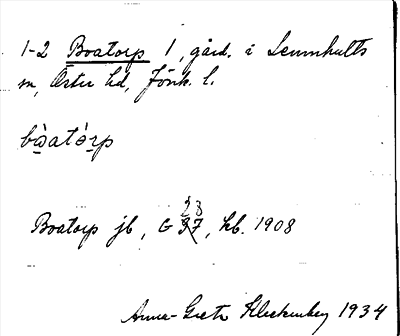 1-2 Boatorp 1, gård. i Lemnhults
sn, Östra hd, Jönk. l.
bòatòrp
28
Boatorp jb, G 37, kb. 1908
Anna-Greta 1934